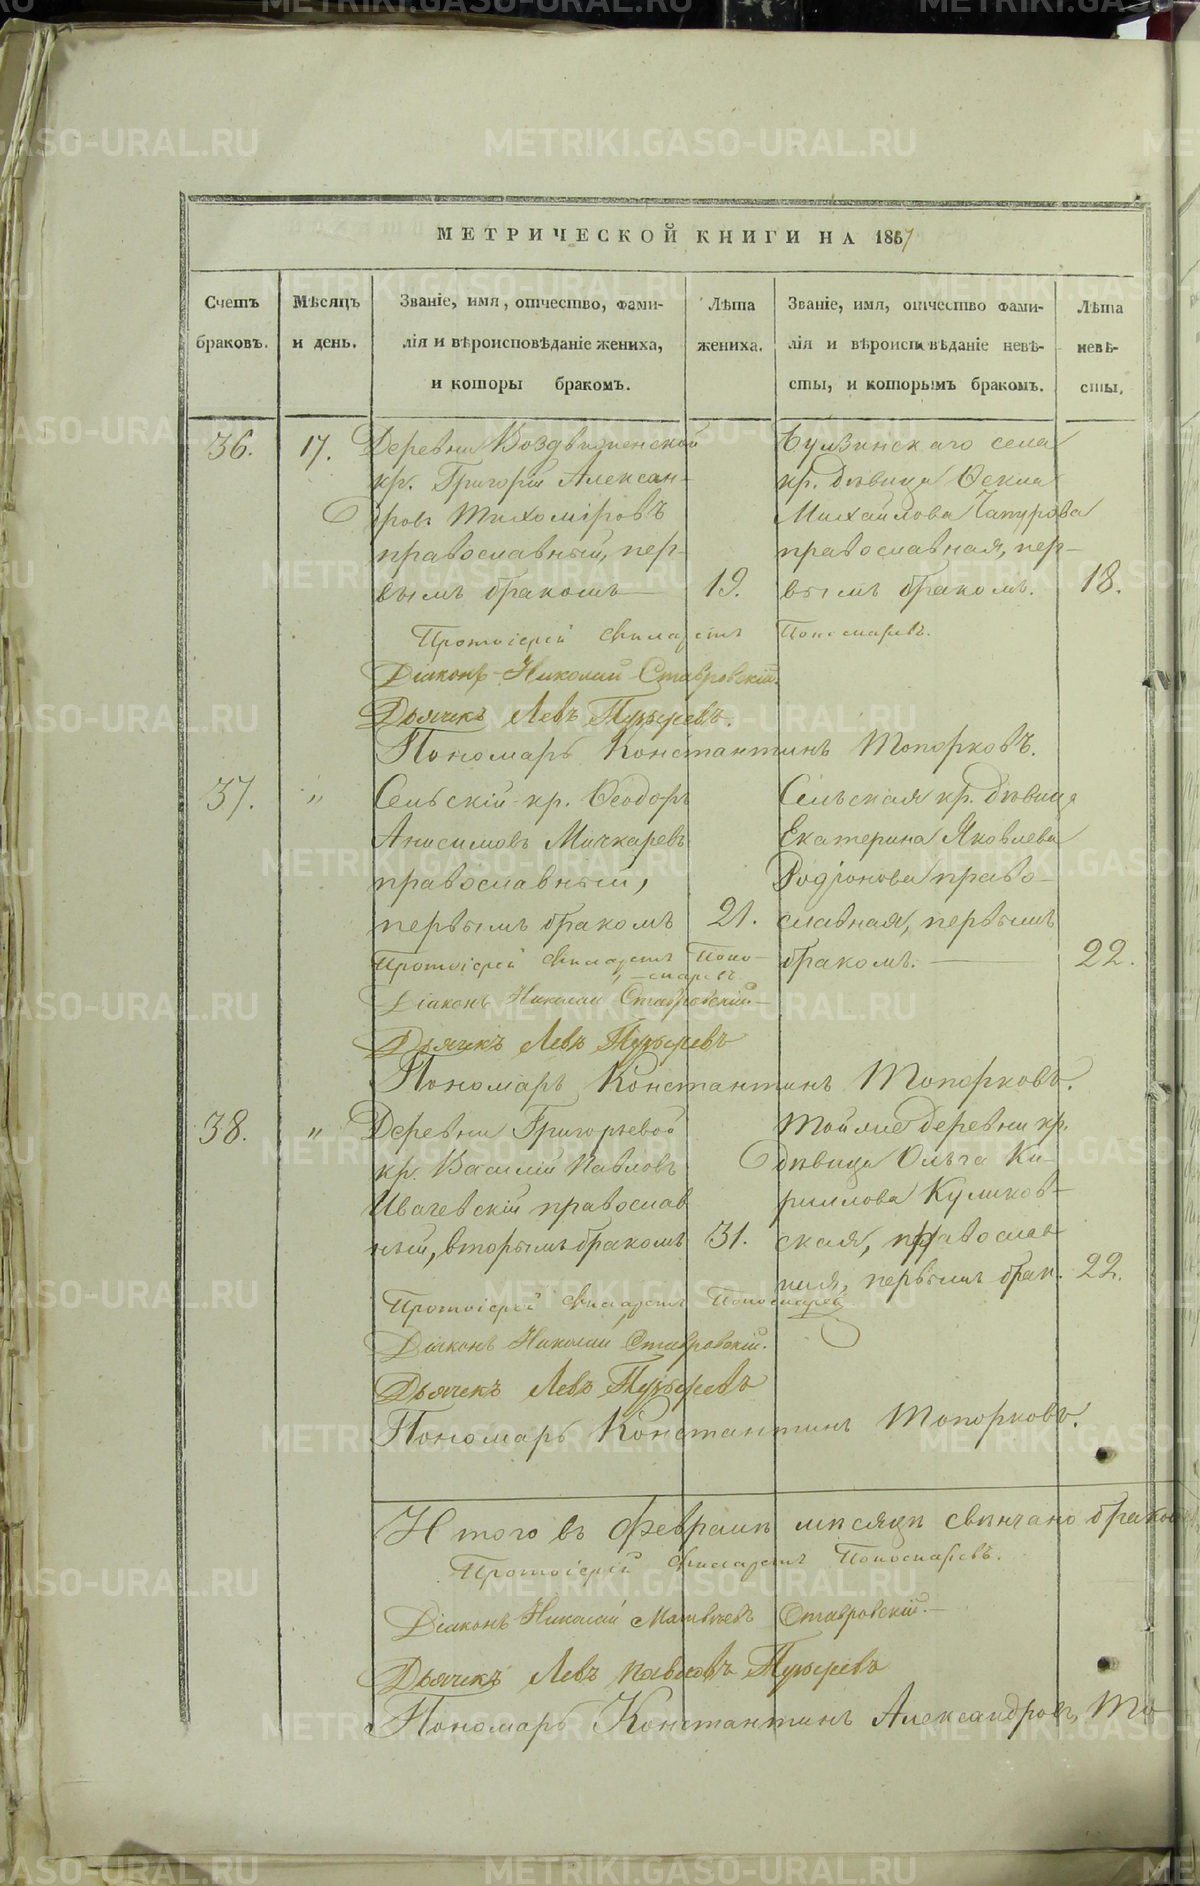 МЕТРИЧЕСКОЙ КНИГИ НА 1867
Счетъ браковъ.
Мѣсяцъ и день.
Званіе, имя, отчество, фами-
лія и вѣроисповѣданіе жениха,
и которы бракомъ.
Лѣта жениха.
Званіе, имя, отчество фами-
лія и вѣроисп вѣданіе невѣ-
сты, и которымъ бракомъ.
Лѣта невѣ-
сты.
36.
17.
Деревни Воздвиженской
кр. Григорій Алексан-
дровъ Тихоміровъ
православный, пер-
вымъ бракомъ
19.
Булзинскаго села
кр. дѣвица
Михайлова
православная, пер-
вымъ бракомъ.
18.
Протоіерей Филаретъ Пономаревъ.
Діаконъ Николай Ставровскій.
Дьячекъ Левъ Пузыревъ.
Пономарь Константинъ Топорковъ.
37.
"
Сельскій кр. Ѳеодоръ
Анисимовъ Мичкаревъ
православный,
первымъ бракомъ
21.
Сельская кр. дѣвица
Екатерина Яковлева
Родіонова право-
славная, первымъ
бракомъ.
22.
Протоіерей Филаретъ Поно-
маревъ
Діаконъ Николай Ставровскій
Дьячекъ Левъ Пузыревъ
Пономарь Константинъ Топорковъ.
38.
"
Деревни Григорьевой
кр. Василій Павловъ
Ивачевскій православ
ный, вторымъ бракомъ
31.
Тойже деревни кр.
дѣвица Ольга Ки-
риллова Куликов-
ская, православ
ная, первымъ брак.
22.
Протоіерей Филаретъ Пономаревъ
Діаконъ Николай Ставровскій.
Дьячекъ Левъ Пузыревъ
Пономарь Константинъ Топорковъ.
Итого въ Февралѣ мѣсяцѣ свѣнчано браков
Протоіерей Филаретъ Пономаревъ.
Діаконъ Николай Матвѣевъ Ставровскій.
Дьячекъ Левъ Павловъ Пузыревъ
Пономарь Константинъ Александровъ То
METRIKI.GASO-URAL.RU